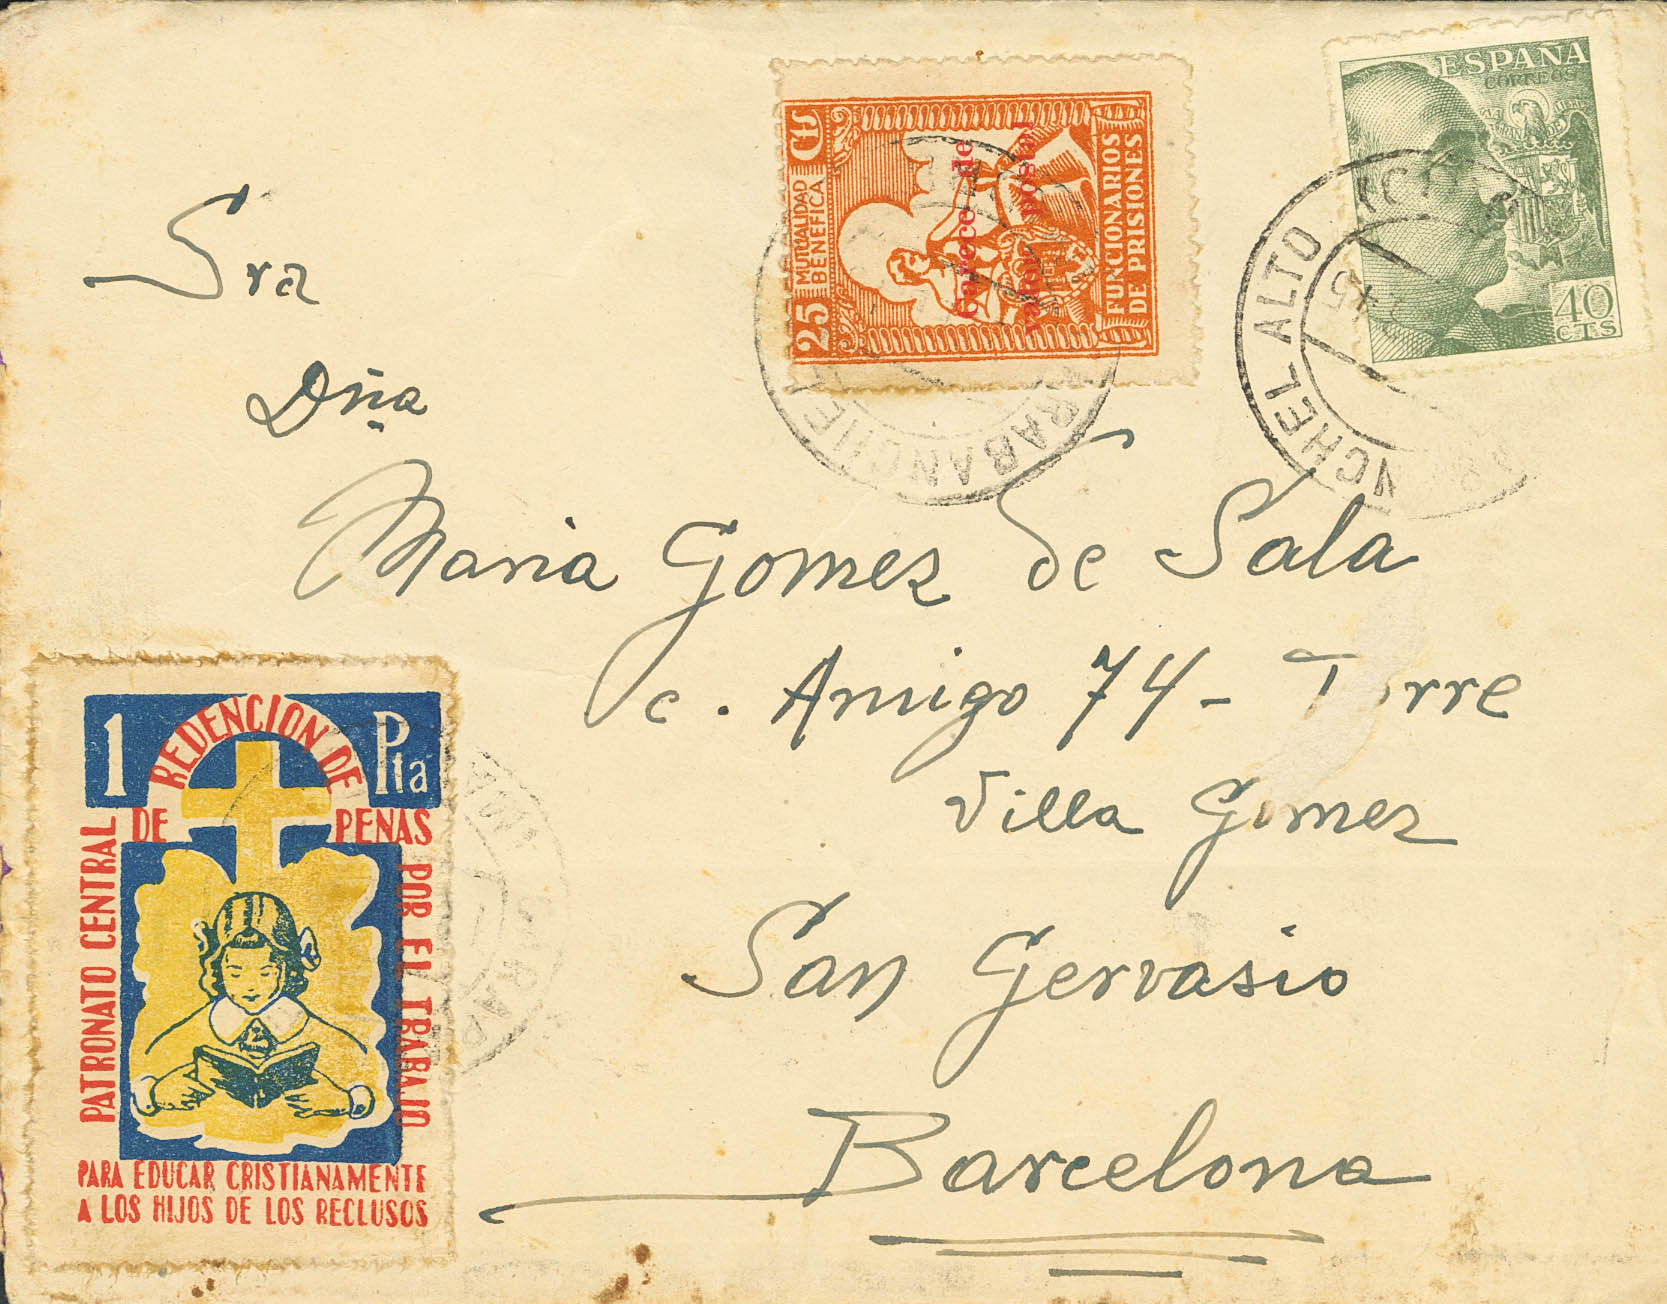 ESPAÑA
CORREOS
40
CTS
25 MUTUALIDAD BENÉFICA Cts
FUNCIONARIOS
DE PRISIONES
Carece de
valor postal
CARABANCHEL
NCHEL ALTO
45
Sra
Dña
Maria Gomez de Sala
c. Amigo 74 - Torre
Villa Gomez
San Gervasio
Barcelona
1 Pta
PATRONATO CENTRAL
DE REDENCION DE PENAS
POR EL TRABAJO
PARA EDUCAR CRISTIANAMENTE
A LOS HIJOS DE LOS RECLUSOS